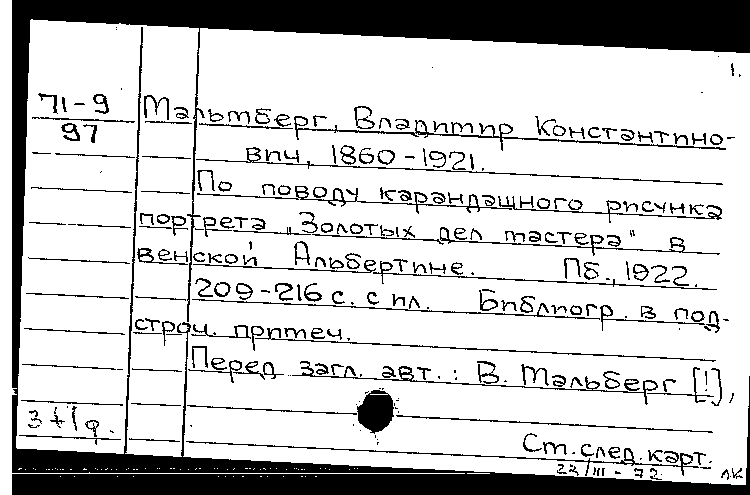 1.
71-9
97
Мальмберг, Владимир Константино-
вич, 1860-1921.
По поводу карандашного рисунка
портрета „Золотых дел мастера" в
венской Альбертине. Пб., 1922.
209-216 с. с ил. Библиогр. в под-
строч. примеч.
Перед загл. авт.: В. Мальберг [!],
См. след. карт.
23/III - 72